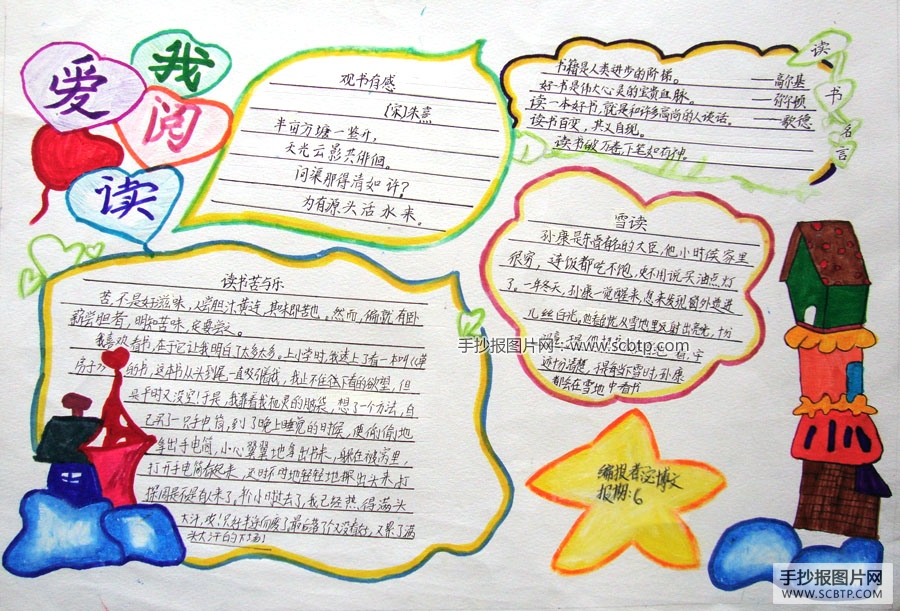 我
爱
阅
读
观书有感
(宋)朱熹
半亩方塘一鉴开,
天光云影共徘徊。
问渠那得清如许?
为有源头活水来。
读书名言
书籍是人类进步的阶梯。 ——高尔基
好书是伟大心灵的宝贵血脉。 ——弥尔顿
读一本好书,就是和许多高尚的人谈话。 ——歌德
读书百变,其义自现。
读书破万卷下笔如有神。
雪读
孙康是东晋有名的大臣,他小时候家里
很穷,连饭都吃不饱,更不用说买油点灯
了。一年冬天,孙康一觉醒来,忽来发现窗外透进
几丝白光,
逐句诵读,提每当下雪时,孙康
都会在雪地中看书
读书苦与乐
苦,不是好滋味,人尝胆汁黄连,其味即苦也。然而,偏就有卧
薪尝胆者,明知苦味,反要尝之。
我喜欢看书,在于它让我明白了太多太多。上小学时,我迷上了看一本叫《草
房子》的书,这本书从头到尾一直吸引着我,我止不住往下看的欲望,但
是平时又没空!于是,我靠着我机灵的脑袋,想了一个方法,自
己买了一只手电筒,到了晚上睡觉的时候,便偷偷地
拿出手电筒,小心翼翼地拿出书来,躲在被窝里,
打开手电筒看起来,还时不时地轻轻地探出头来,打
探周是不是有人来了,半个小时过去了,我已经热得满头
大汗,哎!
头大汗的下场)
编报者:
报期:6
手抄报图片网-www.scbtp.com
手抄报图片网
WWW.SCBTP.COM